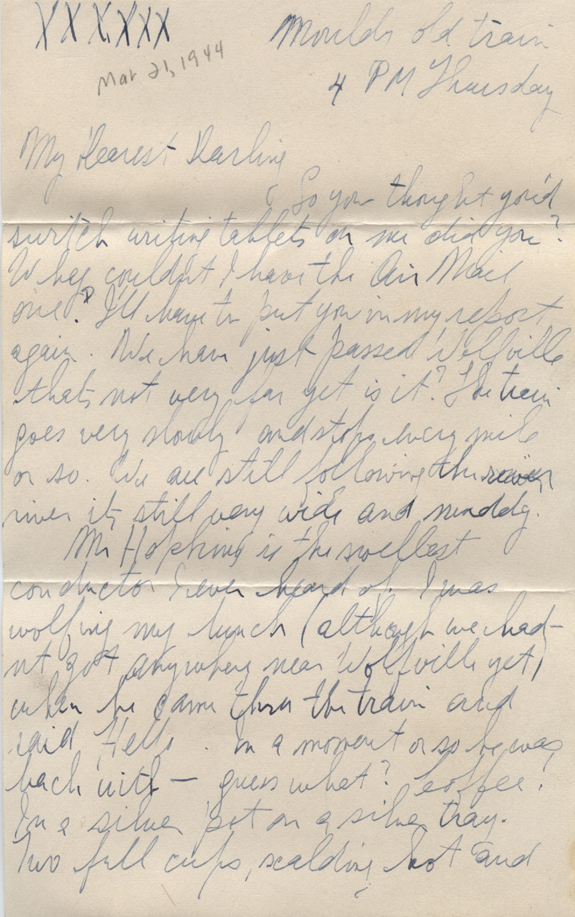 XXXXXX
Mar 21, 1944
Mouldy old train
4 PM Thursday
My Dearest Darling
So you thought you'd
switch writing tablets on me did you?
Why couldn't I have the Air Mail
one? I'll have to put you in my report
again. We have just passed Wolfville
thats not very far yet is it? The train
goes very slowly and stops every mile
or so. We are still following the
river its still very wide and muddy.
Mr Hopkins is the swellest
conductor I ever heard of. I was
wolfing my lunch (although we had-
nt got anywhere near Wolfville yet)
when he came thru the train and
said, Hello. In a moment or so he was
back with — guess what? Coffee!
In a silver pot on a silver tray.
Two full cups, scalding hot and